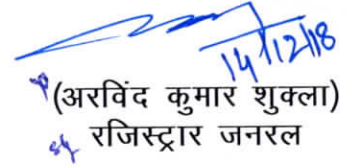 14/12/18
(अरविंद कुमार शुक्ला)
रजिस्ट्रार जनरल